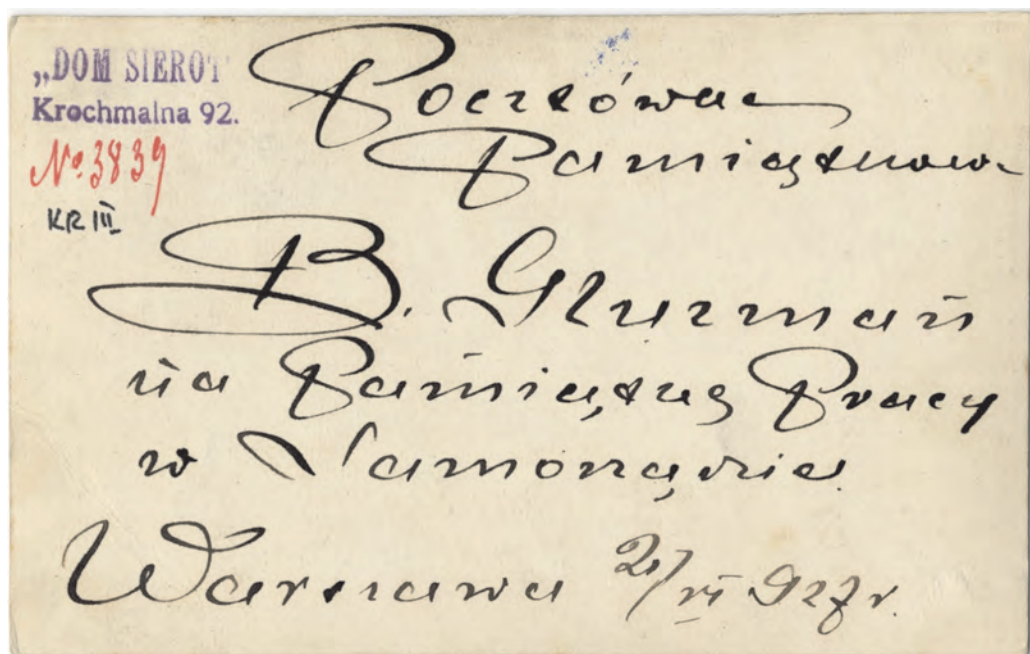 „DOM SIEROT"
Krochmalna 92.
№ 3839
KR III
Pocztówka
Pamiątkowa
B. Gluzman
na Pamiątkę Pracy
w Samorządzie.
Warszawa 2/VI 927 r.